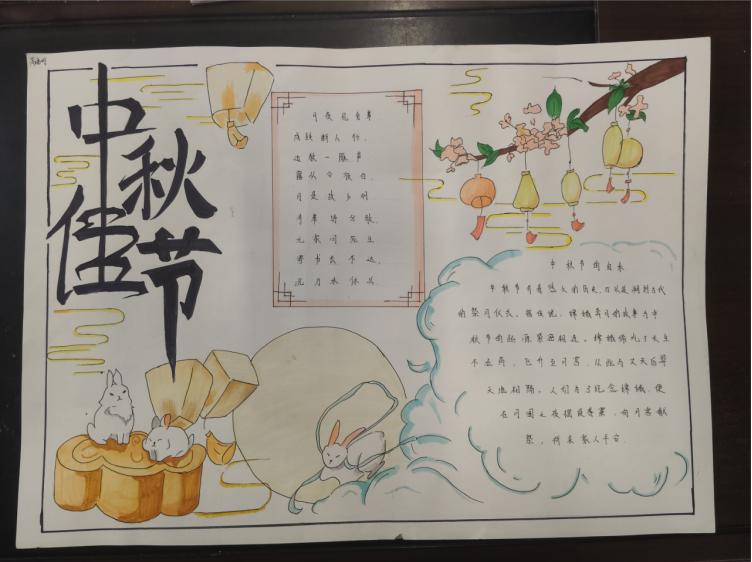 中秋佳节
月夜忆舍弟
戍鼓断人行,
边秋一雁声
露从今夜白,
月是故乡明
有弟皆分散,
无家问死生
寄书长不达,
况乃未休兵
中秋节的由来
中秋节有着悠久的历史,可以追溯到古代
的祭月仪式。据传说,嫦娥奔月的故事与中
秋节的起源紧密相连。嫦娥偷吃了长生
不老药,飞升至月宫,从此与丈夫后羿
天地相隔。人们为了纪念嫦娥,便
在月圆之夜摆设香案,向月宫献
祭,祈求家人平安。